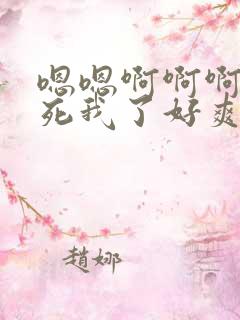 嗯嗯啊啊啊
死我了好爽
趙娜